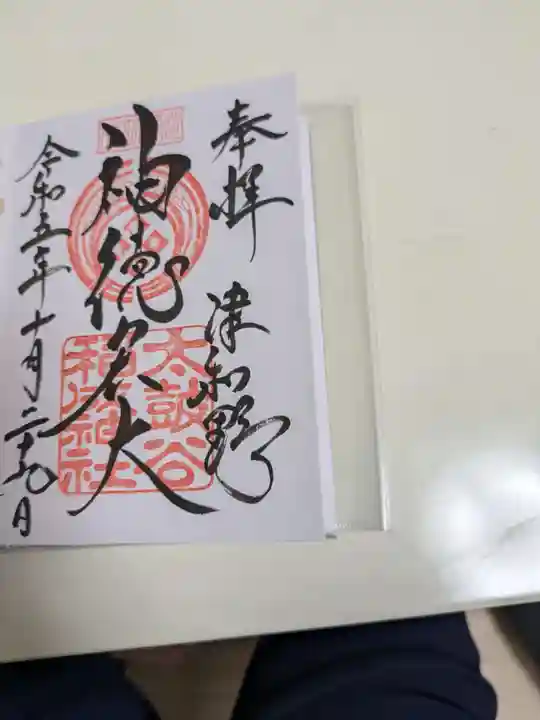 奉拝 津和野
神徳宏大
太鼓谷
稲成神社
令和五年十月二十九日